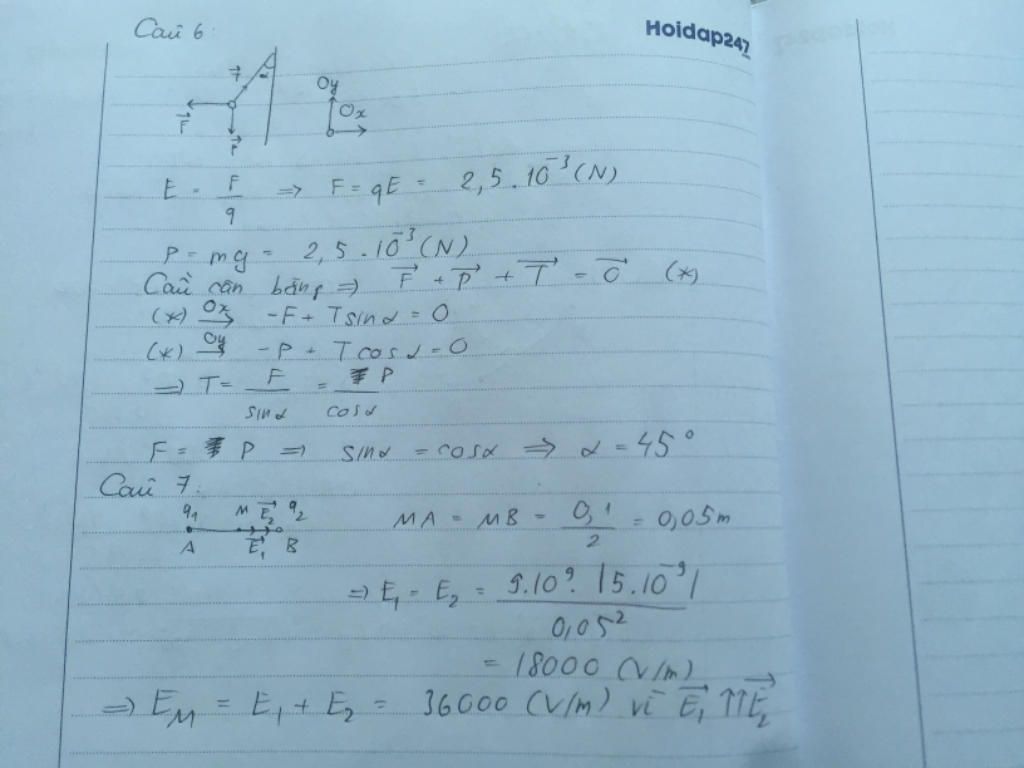 Câu 6:
Hoidap247
T α
Oy
Ox
F
P
E = F/q => F = qE = 2,5.10^-3 (N)
P = mg = 2,5.10^-3 (N)
Cầu cân bằng => F + P + T = 0 (*)
(*) Ox→ -F + Tsinα = 0
(*) Oy→ -P + Tcosα = 0
=> T = F/sinα = P/cosα
F = P => sinα = cosα => α = 45°
Câu 7:
q1 M E2 q2
A E1 B
MA = MB = 0,1/2 = 0,05m
=> E1 = E2 = 9.10^9.|5.10^-9|/0,05^2
= 18000 (V/m)
=> EM = E1 + E2 = 36000 (V/m) vì E1 ↑↑ E2